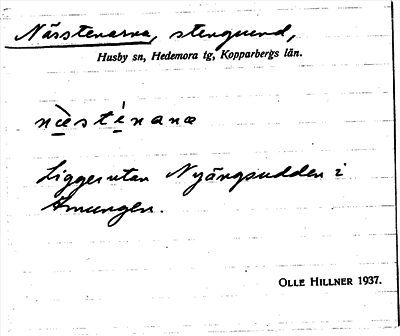 Nässtenarna, stengrund,
Husby sn, Hedemora tg, Kopparbergs län.
næ̀stènanæ
Ligger utan Nyängsudden i
Amungen.
OLLE HILLNER 1937.